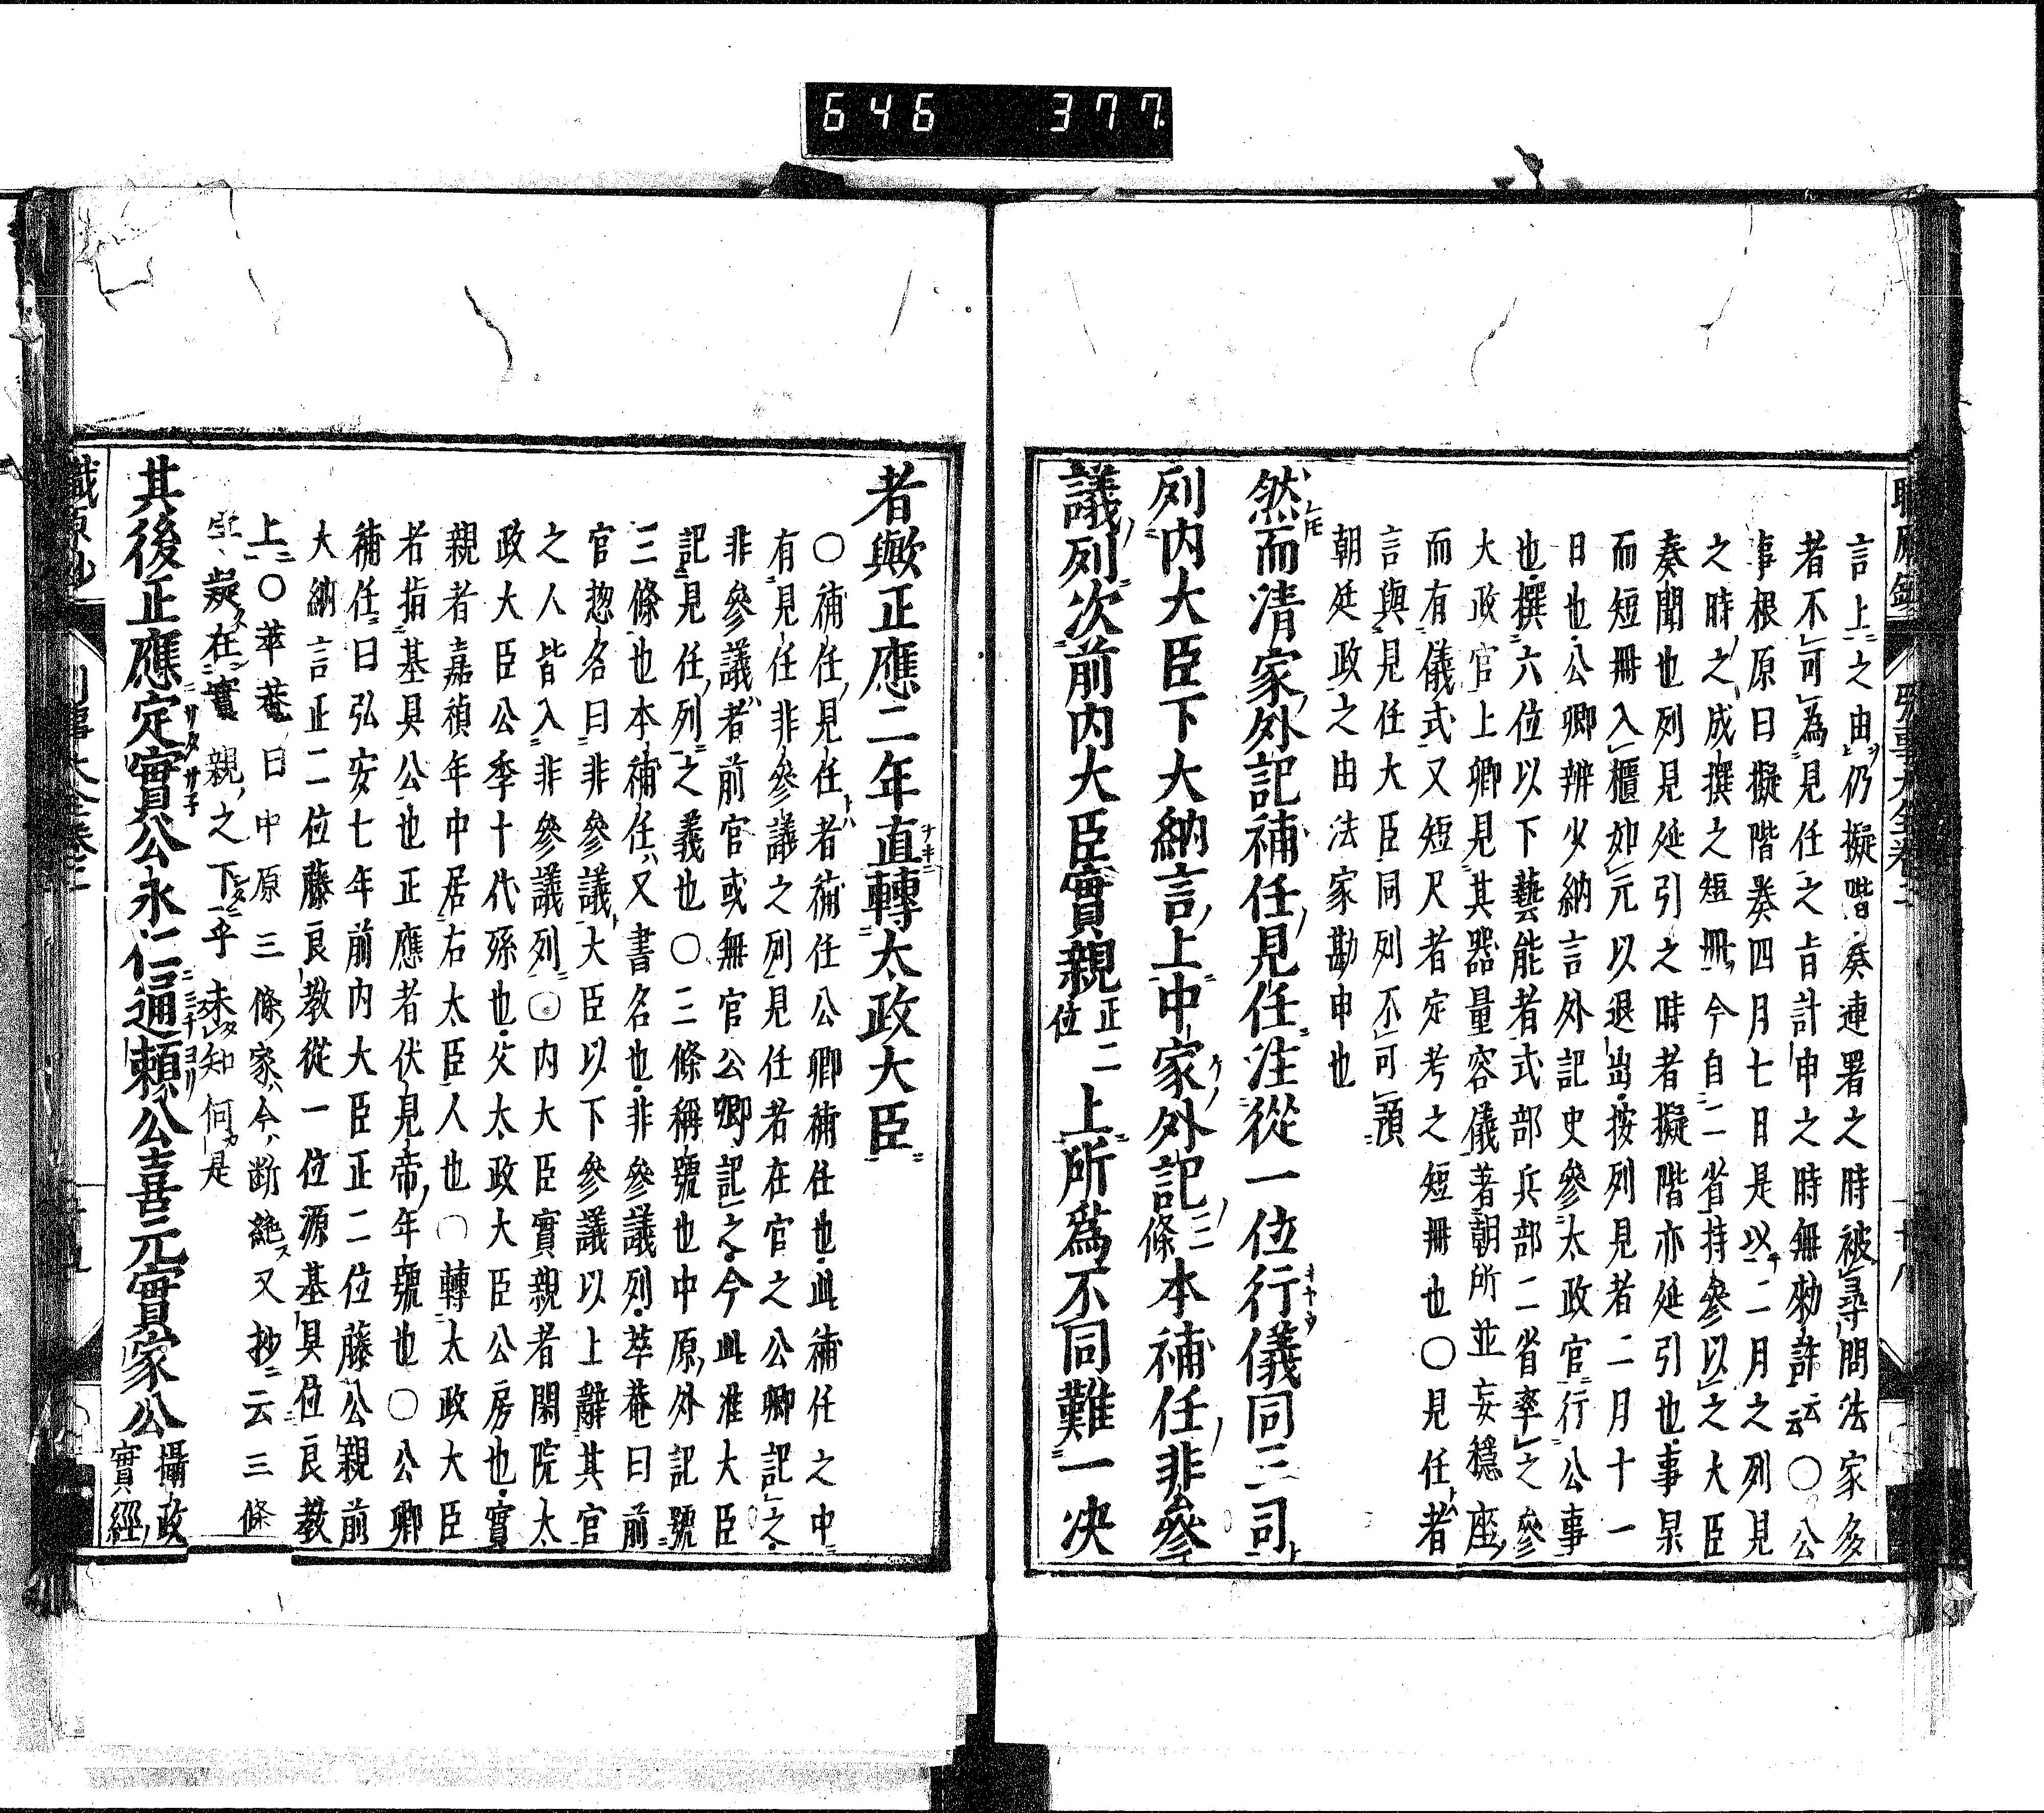 646 377
言上之由仍擬階奏連署之時被尋問法家多
者不可為見任之旨計申之時無勅許云云〇公
事根原曰擬階奏四月七日是以二月之列見
之時之成撰之短冊今自二省持參以之大臣
奏聞也列見延引之時者擬階亦延引也事杲
而短冊入櫃如元以退出按列見者二月十一
日也公卿辨少納言外記史參太政官行公事
也撰六位以下藝能者式部兵部二省率之參
大政官上卿見其器量容儀著朝所並妄穩座
而有儀式又短尺者定考之短冊也〇見任者
言與見任大臣同列不可預
朝廷政之由法家勘申也
然而清家外記補任見任注從一位行儀同三司
列内大臣下大納言上中家外記三條本補任非參
議列次前内大臣實親正二位上所爲不同難一决
者歟正應二年直轉太政大臣
〇補任見任者補任公卿補任也此補任之中
有見任非參議之列見任者在官之公卿記之
非參議者前官或無官公卿記之今此准大臣
記見任列之義也〇三條稱號也中原外記號
三條也本補任又書名也非參議列萃菴曰前
官惣名曰非參議大臣以下參議以上辭其官
之人皆入非參議列〇内大臣實親者閑院太
政大臣公季十代孫也父太政大臣公房也實
親者嘉禎年中居右大臣人也〇轉太政大臣
者指基具公也正應者伏見帝年號也〇公卿
補任曰弘安七年前内大臣正二位藤公親前
大納言正二位藤良教從一位源基具位良教
上〇萃菴曰中原三條家今断絶又抄云三條
疑在實親之下乎未知何是
其後正應定實公永仁通頼公喜元實家公攝政實經
職原抄